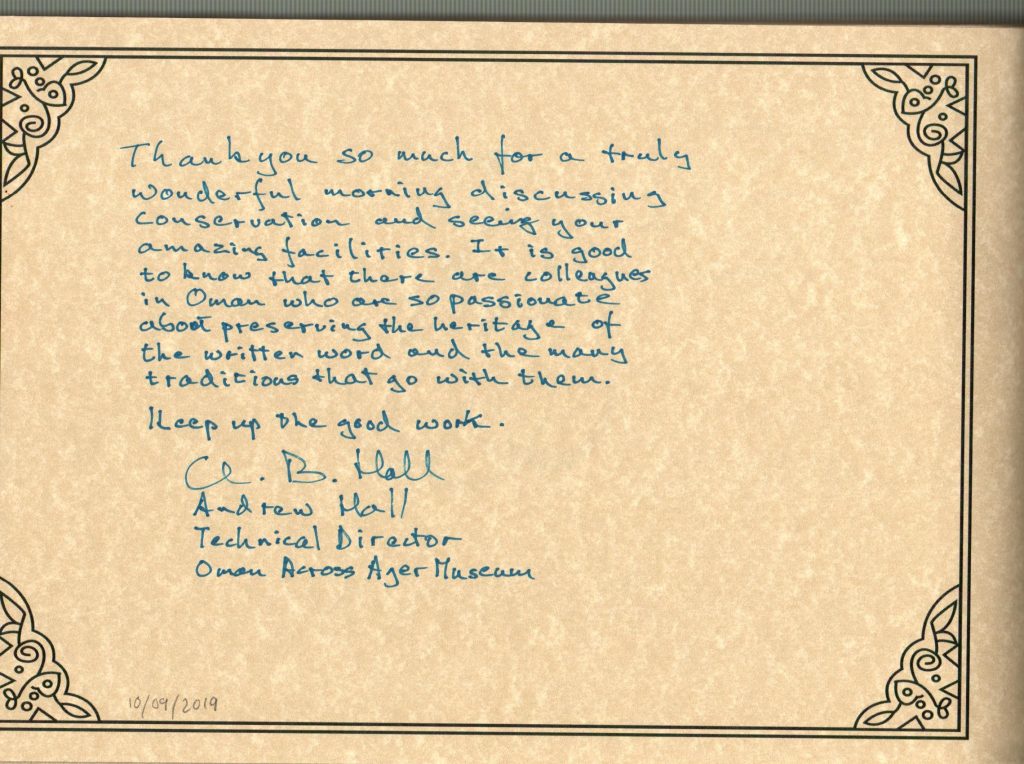 Thank you so much for a truly
wonderful morning discussing
conservation and seeing your
amazing facilities. It is good
to know that there are colleagues
in Oman who are so passionate
about preserving the heritage of
the written word and the many
traditions that go with them.
Keep up the good work.
A. B. Hall
Andrew Hall
Technical Director
Oman Across Ages Museum
10/09/2019